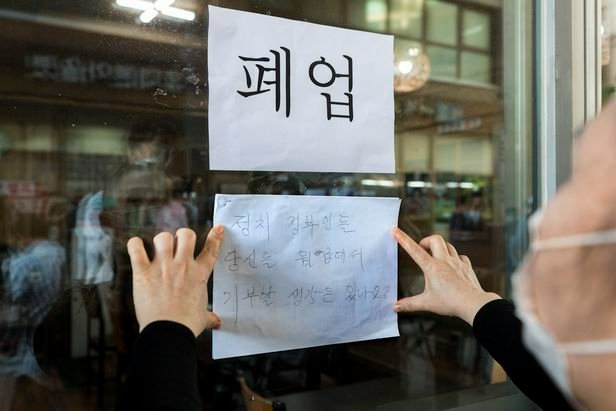 폐업
정치 정부인들
당신들 월급에서
기부할 생각은 있나요?